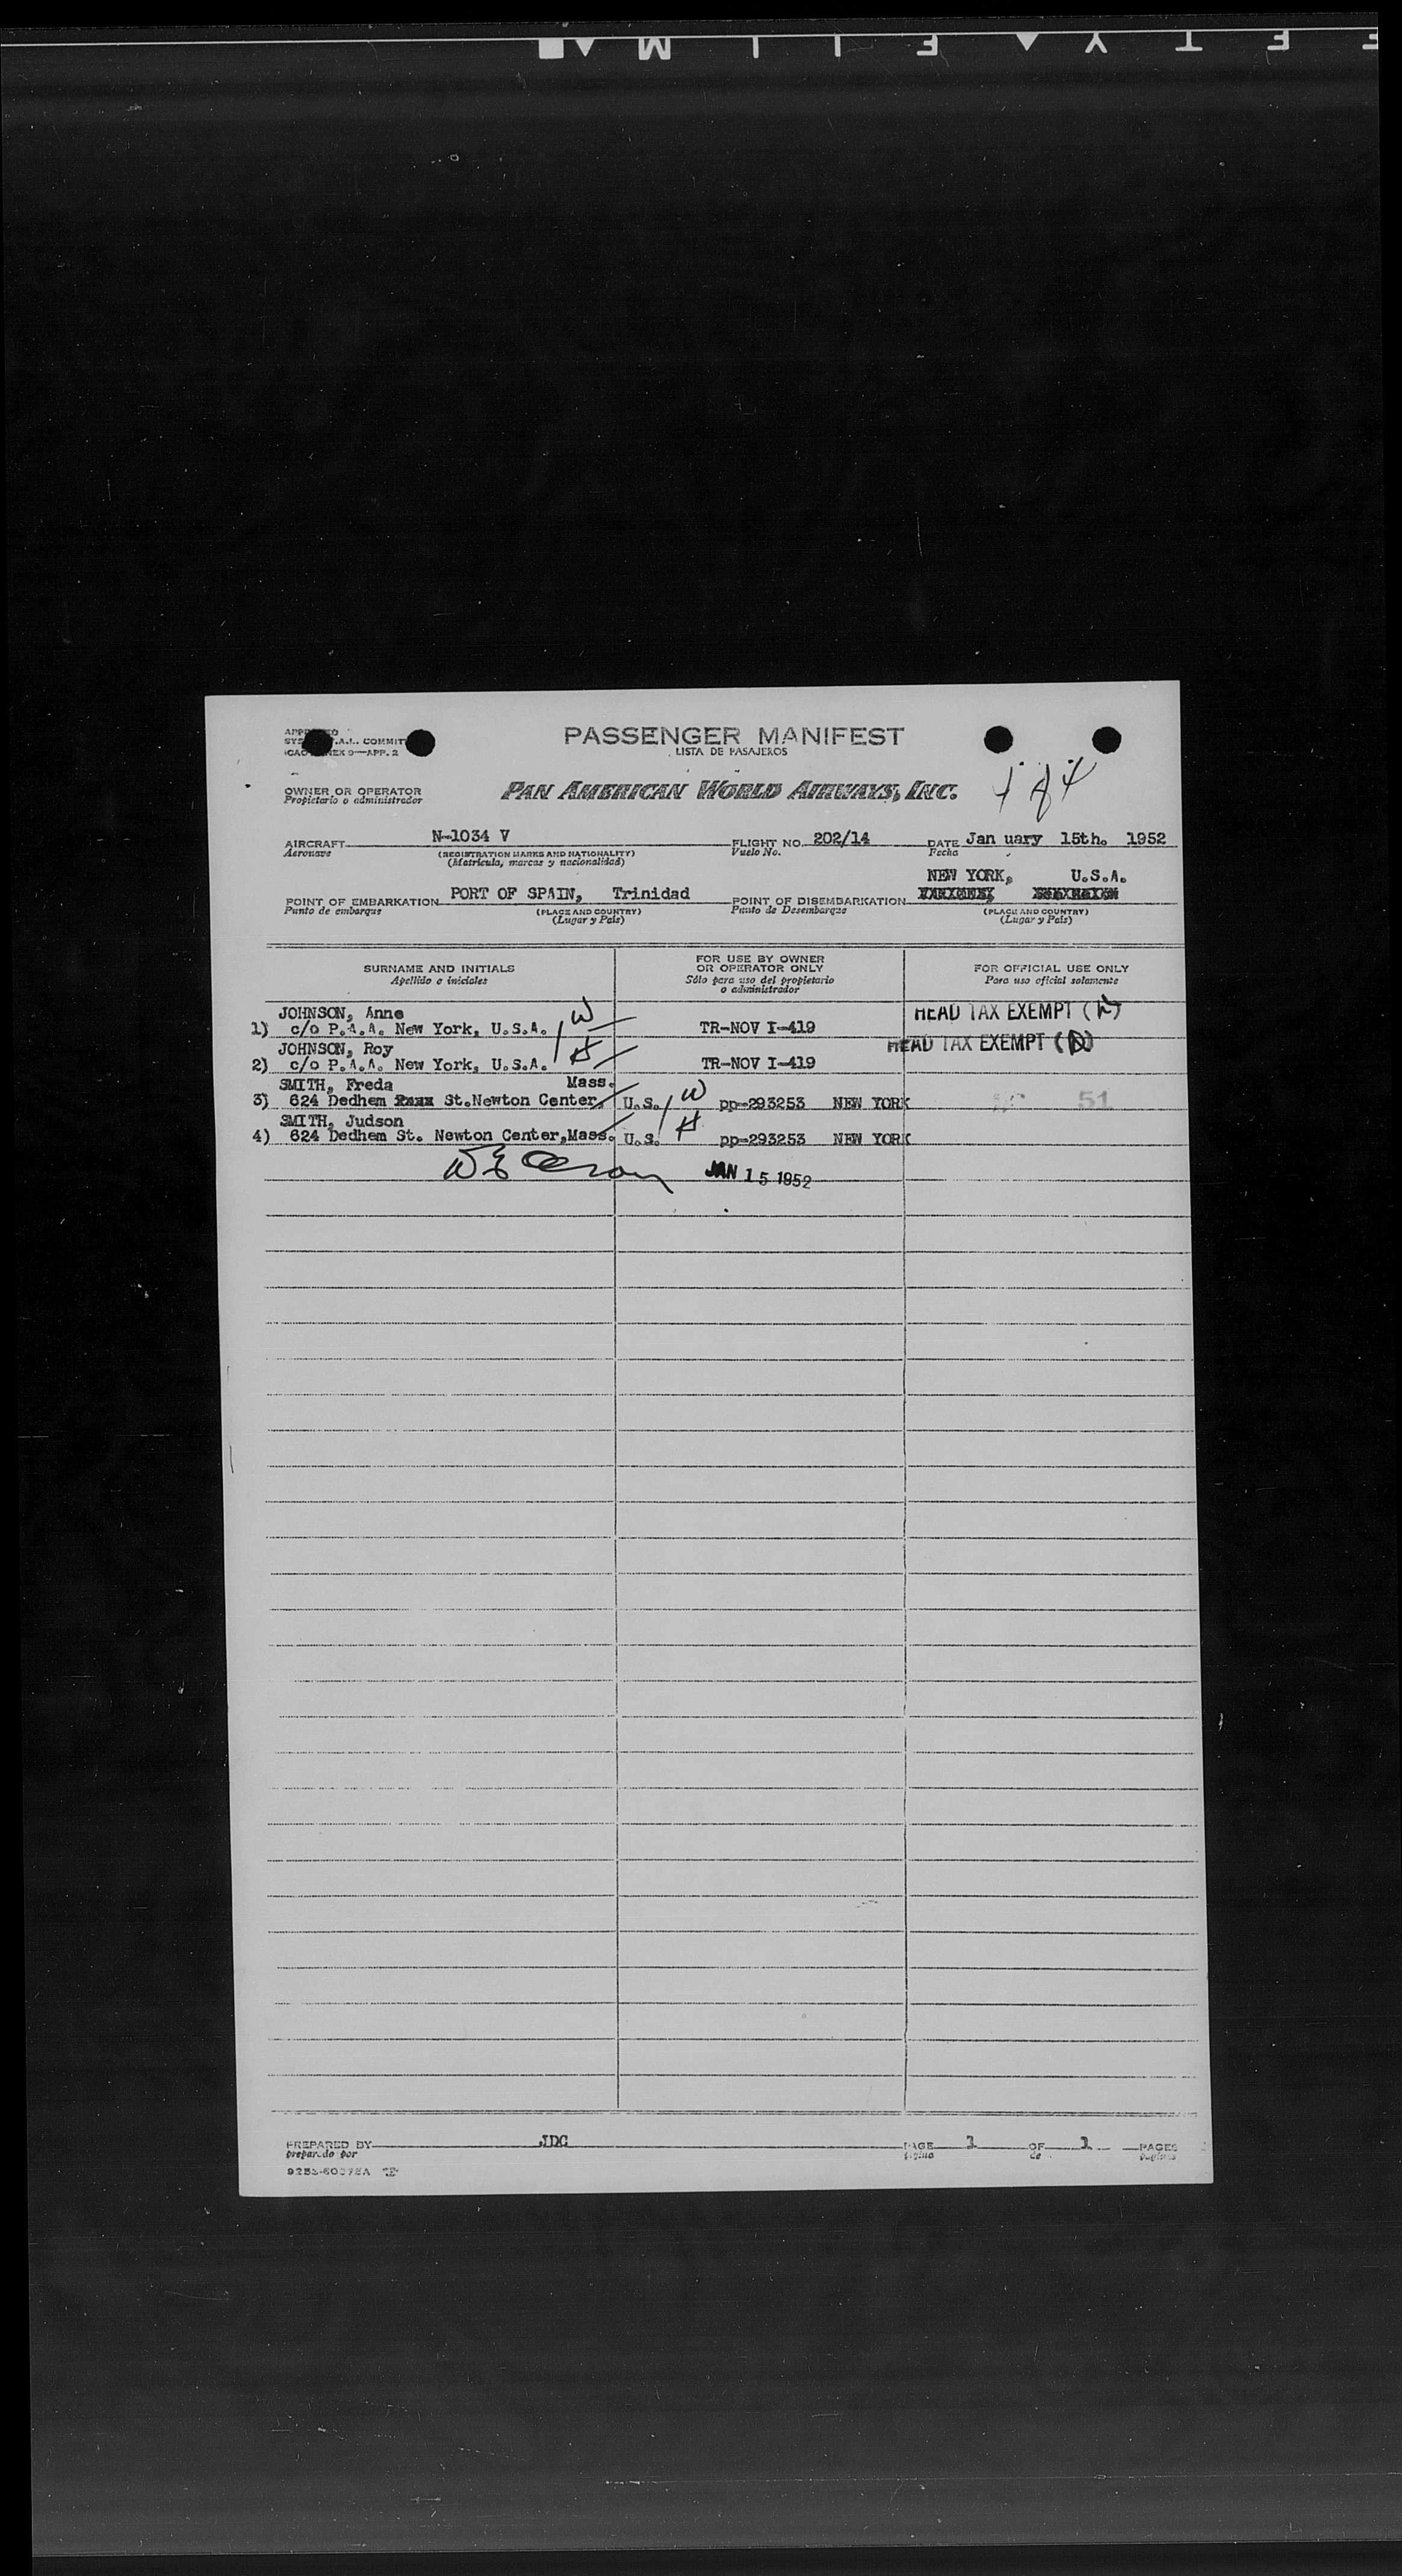 PASSENGER MANIFEST
LISTA DE PASAJEROS
OWNER OR OPERATOR
Propietario o administrador
PAN AMERICAN WORLD AIRWAYS, INC.
AIRCRAFT N-1034 V FLIGHT NO. 202/14 DATE Jan uary 15th. 1952
Aeronave (REGISTRATION MARKS AND NATIONALITY) Vuelo No. Fecha
(Matricula, marcas y nacionalidad)
NEW YORK, U.S.A.
POINT OF EMBARKATION PORT OF SPAIN, Trinidad POINT OF DISEMBARKATION
Punto de embarque (PLACE AND COUNTRY) Punto de Desembarque (PLACE AND COUNTRY)
(Lugar y País) (Lugar y País)
SURNAME AND INITIALS
Apellido e iniciales
FOR USE BY OWNER
OR OPERATOR ONLY
Sólo para uso del propietario
o administrador
FOR OFFICIAL USE ONLY
Para uso oficial solamente
JOHNSON, Anne W HEAD TAX EXEMPT
1) c/o P.A.A. New York, U.S.A. TR-NOV I-419
JOHNSON, Roy H HEAD TAX EXEMPT
2) c/o P.A.A. New York, U.S.A. TR-NOV I-419
SMITH, Freda Mass.
3) 624 Dedhem St.Newton Center, U.S. W pp-293253 NEW YORK 51
SMITH, Judson
4) 624 Dedhem St. Newton Center,Mass. U.S. H pp-293253 NEW YORK
JAN 15 1952
PREPARED BY JDC PAGE 1 OF 1 PAGES
preparado por página de páginas